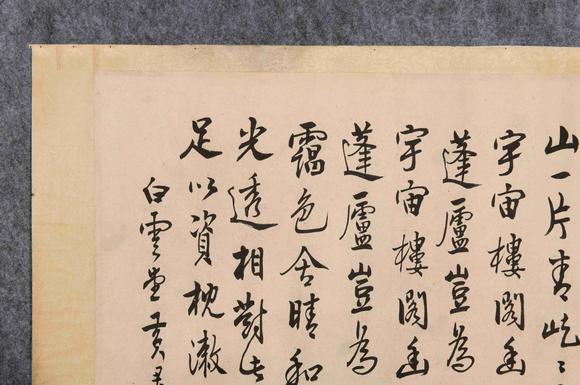 山一片青屹〻
宇宙樓閣函
蓬廬豈為
宇宙樓閣函
蓬廬豈為
靄色含晴和
光透相對
足以資枕漱
白雲堂黃君